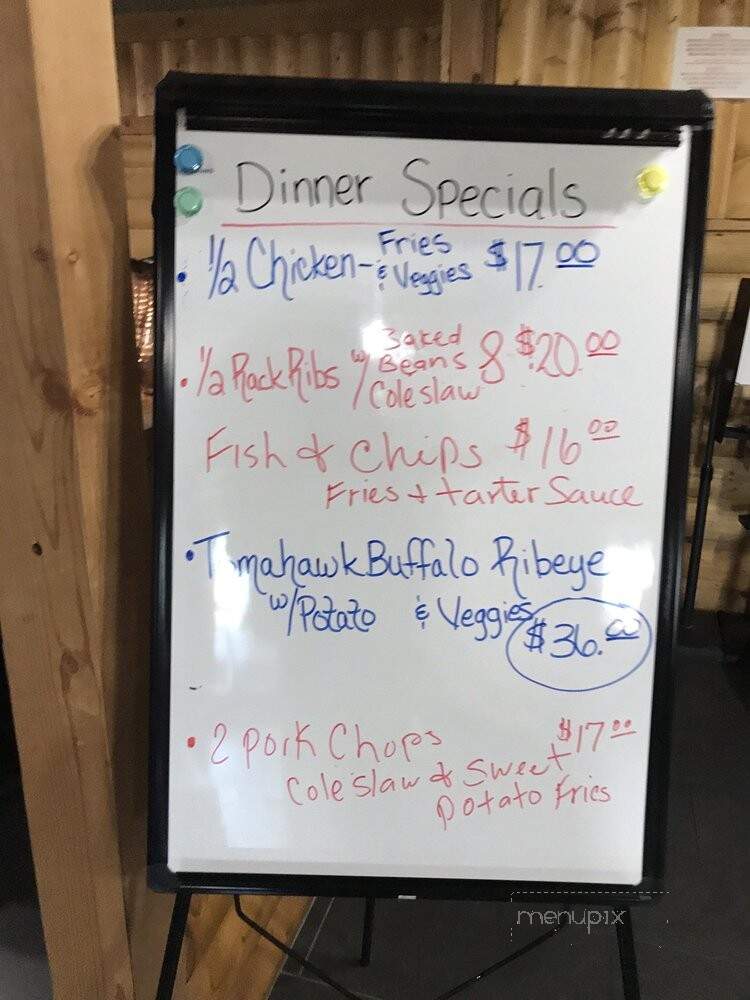 Dinner Specials
• 1/2 Chicken - Fries & Veggies $17.00
• 1/2 Rack Ribs w/ Baked Beans & Coleslaw $20.00
Fish & Chips $16.00
Fries + tarter Sauce
• Tomahawk Buffalo Ribeye
w/Potato & Veggies
$36.00
• 2 Pork Chops $17.00
Coleslaw & Sweet
potato fries
menupix